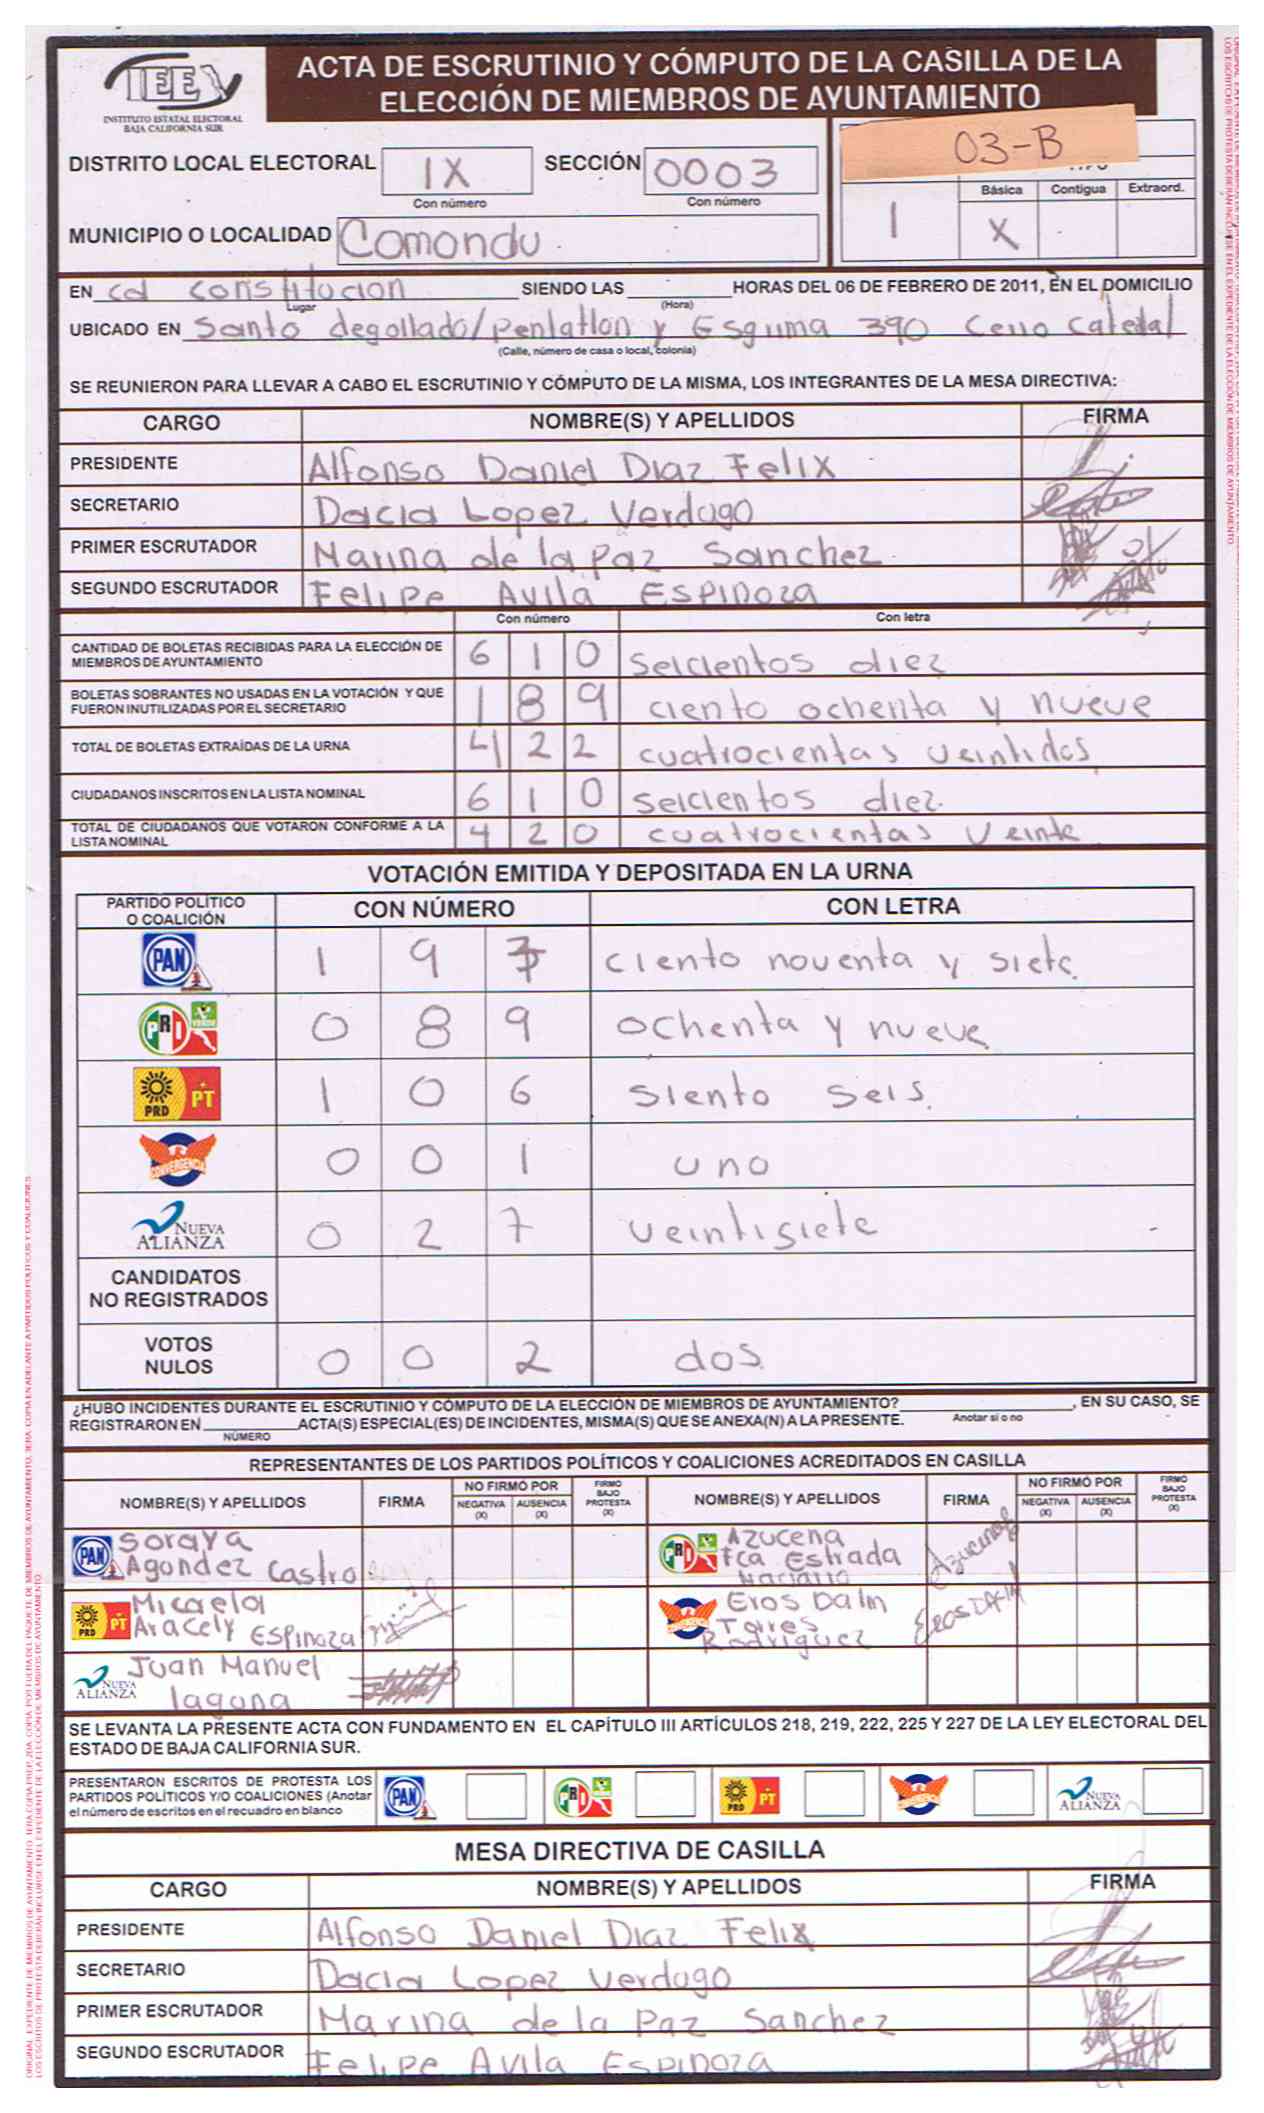 IEE
INSTITUTO ESTATAL ELECTORAL
BAJA CALIFORNIA SUR
ACTA DE ESCRUTINIO Y CÓMPUTO DE LA CASILLA DE LA
ELECCIÓN DE MIEMBROS DE AYUNTAMIENTO
DISTRITO LOCAL ELECTORAL IX SECCIÓN 0003
Con número Con número
03-B
Básica Contigua Extraord.
1 X
MUNICIPIO O LOCALIDAD Comondu
EN cd constitucion SIENDO LAS HORAS DEL 06 DE FEBRERO DE 2011, EN EL DOMICILIO
Lugar (Hora)
UBICADO EN Santo degollado/pentatlon y Esgrima 390 Cerro Catedal
(Calle, número de casa o local, colonia)
SE REUNIERON PARA LLEVAR A CABO EL ESCRUTINIO Y CÓMPUTO DE LA MISMA, LOS INTEGRANTES DE LA MESA DIRECTIVA:
CARGO NOMBRE(S) Y APELLIDOS FIRMA
PRESIDENTE Alfonso Daniel Diaz Felix
SECRETARIO Dacia Lopez Verdugo
PRIMER ESCRUTADOR Marina de la Paz Sanchez
SEGUNDO ESCRUTADOR Felipe Avila Espinoza
Con número Con letra
CANTIDAD DE BOLETAS RECIBIDAS PARA LA ELECCIÓN DE
MIEMBROS DE AYUNTAMIENTO 6 1 0 seicientos diez
BOLETAS SOBRANTES NO USADAS EN LA VOTACIÓN Y QUE
FUERON INUTILIZADAS POR EL SECRETARIO 1 8 9 ciento ochenta y nueve
TOTAL DE BOLETAS EXTRAÍDAS DE LA URNA 4 2 2 cuatrocientas veintidos
CIUDADANOS INSCRITOS EN LA LISTA NOMINAL 6 1 0 seicientos diez
TOTAL DE CIUDADANOS QUE VOTARON CONFORME A LA
LISTA NOMINAL 4 2 0 cuatrocientas veinte
VOTACIÓN EMITIDA Y DEPOSITADA EN LA URNA
PARTIDO POLÍTICO
O COALICIÓN CON NÚMERO CON LETRA
PAN 1 9 7 ciento noventa y siete
PRI VERDE 0 8 9 ochenta y nueve
PRD PT 1 0 6 siento seis.
CONVERGENCIA 0 0 1 uno
NUEVA ALIANZA 0 2 7 veintisiete
CANDIDATOS
NO REGISTRADOS
VOTOS
NULOS 0 0 2 dos
¿HUBO INCIDENTES DURANTE EL ESCRUTINIO Y CÓMPUTO DE LA ELECCIÓN DE MIEMBROS DE AYUNTAMIENTO? , EN SU CASO, SE
REGISTRARON EN ACTA(S) ESPECIAL(ES) DE INCIDENTES, MISMA(S) QUE SE ANEXA(N) A LA PRESENTE. Anotar si o no
NÚMERO
REPRESENTANTES DE LOS PARTIDOS POLÍTICOS Y COALICIONES ACREDITADOS EN CASILLA
NOMBRE(S) Y APELLIDOS FIRMA NO FIRMÓ POR NEGATIVA (X) AUSENCIA (X) FIRMÓ BAJO PROTESTA (X) NOMBRE(S) Y APELLIDOS FIRMA NO FIRMÓ POR NEGATIVA (X) AUSENCIA (X) FIRMÓ BAJO PROTESTA (X)
PAN Soraya
Agondez Castro
PRI Azucena
Fca Estrada
Azucena
PRD PT Micaela
Aracely Espinoza
CONVERGENCIA Eros Dalm
Torres
Rodriguez
NUEVA ALIANZA Juan Manuel
laguna
SE LEVANTA LA PRESENTE ACTA CON FUNDAMENTO EN EL CAPÍTULO III ARTÍCULOS 218, 219, 222, 225 Y 227 DE LA LEY ELECTORAL DEL
ESTADO DE BAJA CALIFORNIA SUR.
PRESENTARON ESCRITOS DE PROTESTA LOS
PARTIDOS POLÍTICOS Y/O COALICIONES (Anotar
el número de escritos en el recuadro en blanco
PAN PRI PRD PT CONVERGENCIA NUEVA ALIANZA
MESA DIRECTIVA DE CASILLA
CARGO NOMBRE(S) Y APELLIDOS FIRMA
PRESIDENTE Alfonso Daniel Diaz Felix
SECRETARIO Dacia Lopez Verdugo
PRIMER ESCRUTADOR Marina de la Paz Sanchez
SEGUNDO ESCRUTADOR Felipe Avila Espinoza